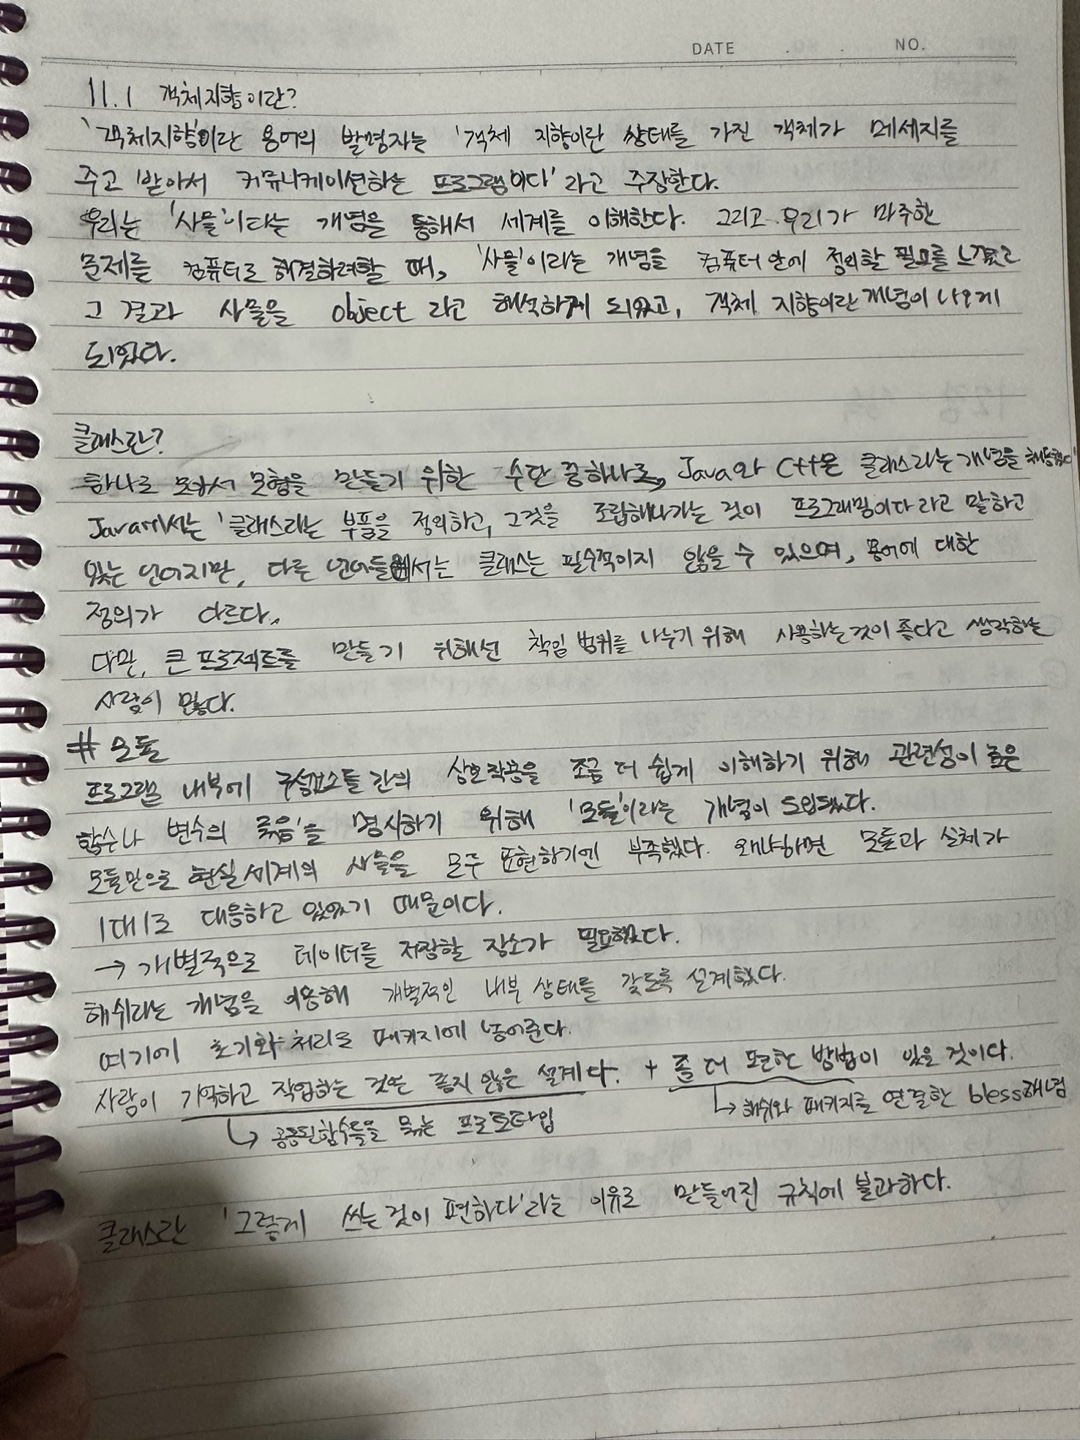 DATE . . NO.
11.1 객체지향이란?
'객체지향'이란 용어의 발명자는 '객체 지향이란 상태를 가진 객체가 메세지를
주고 받아서 커뮤니케이션하는 프로그램이다'라고 주장한다.
우리는 '사물'이다는 개념을 통해서 세계를 이해한다. 그리고 우리가 마주한
문제를 컴퓨터로 해결하려할 때, '사물'이라는 개념을 컴퓨터 안에 정의할 필요를 느꼈고
그 결과 사물을 object 라고 해석하게 되었고, 객체 지향이란 개념이 나오게
되었다.
클래스란?
하나로 모아서 모형을 만들기 위한 수단 중 하나로, Java와 C++은 클래스라는 개념을
Java에서는 '클래스라는 부품을 정의하고, 그것을 조립해나가는 것이 프로그래밍이다라고 말하고
있는 언어지만, 다른 언어들에서는 클래스는 필수적이지 않을 수 있으며, 용어에 대한
정의가 다르다.
다만, 큰 프로젝트를 만들기 위해선 책임 범위를 나누기 위해 사용하는 것이 좋다고 생각하는
사람이 많다.
# 모듈
프로그램 내부에 구성요소들 간의 상호작용을 조금 더 쉽게 이해하기 위해 관련성이 높은
함수나 변수의 묶음'을 명시하기 위해 '모듈'이라는 개념이 도입됐다.
모듈만으로 현실세계의 사물을 모두 표현하기엔 부족했다. 왜냐하면 모듈과 실체가
1대1로 대응하고 있었기 때문이다.
→ 개별적으로 데이터를 저장할 장소가 필요했다.
해쉬라는 개념을 이용해 개별적인 내부 상태를 갖도록 설계했다.
여기에 초기화 처리도 패키지에 넣어준다.
사람이 기억하고 작업하는 것은 좋지 않은 설계다. + 좀 더 편한 방법이 있을 것이다.
↳ 해쉬와 패키지를 연결한 bless개념
↳ 공통된함수들을 묶는 프로토타입
클래스란 '그렇게 쓰는 것이 편하다'라는 이유로 만들어진 규칙에 불과하다.